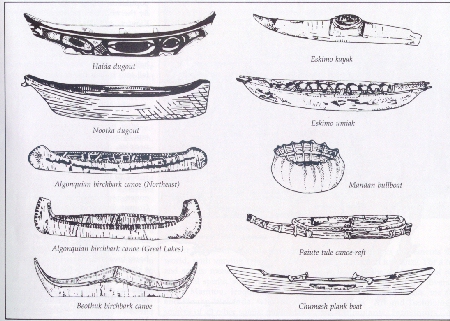 Haida dugout
Nootka dugout
Algonquian birchbark canoe (Northeast)
Algonquian birchbark canoe (Great Lakes)
Beothuk birchbark canoe
Eskimo kayak
Eskimo umiak
Mandan bullboat
Paiute tule canoe raft
Chumash plank boat